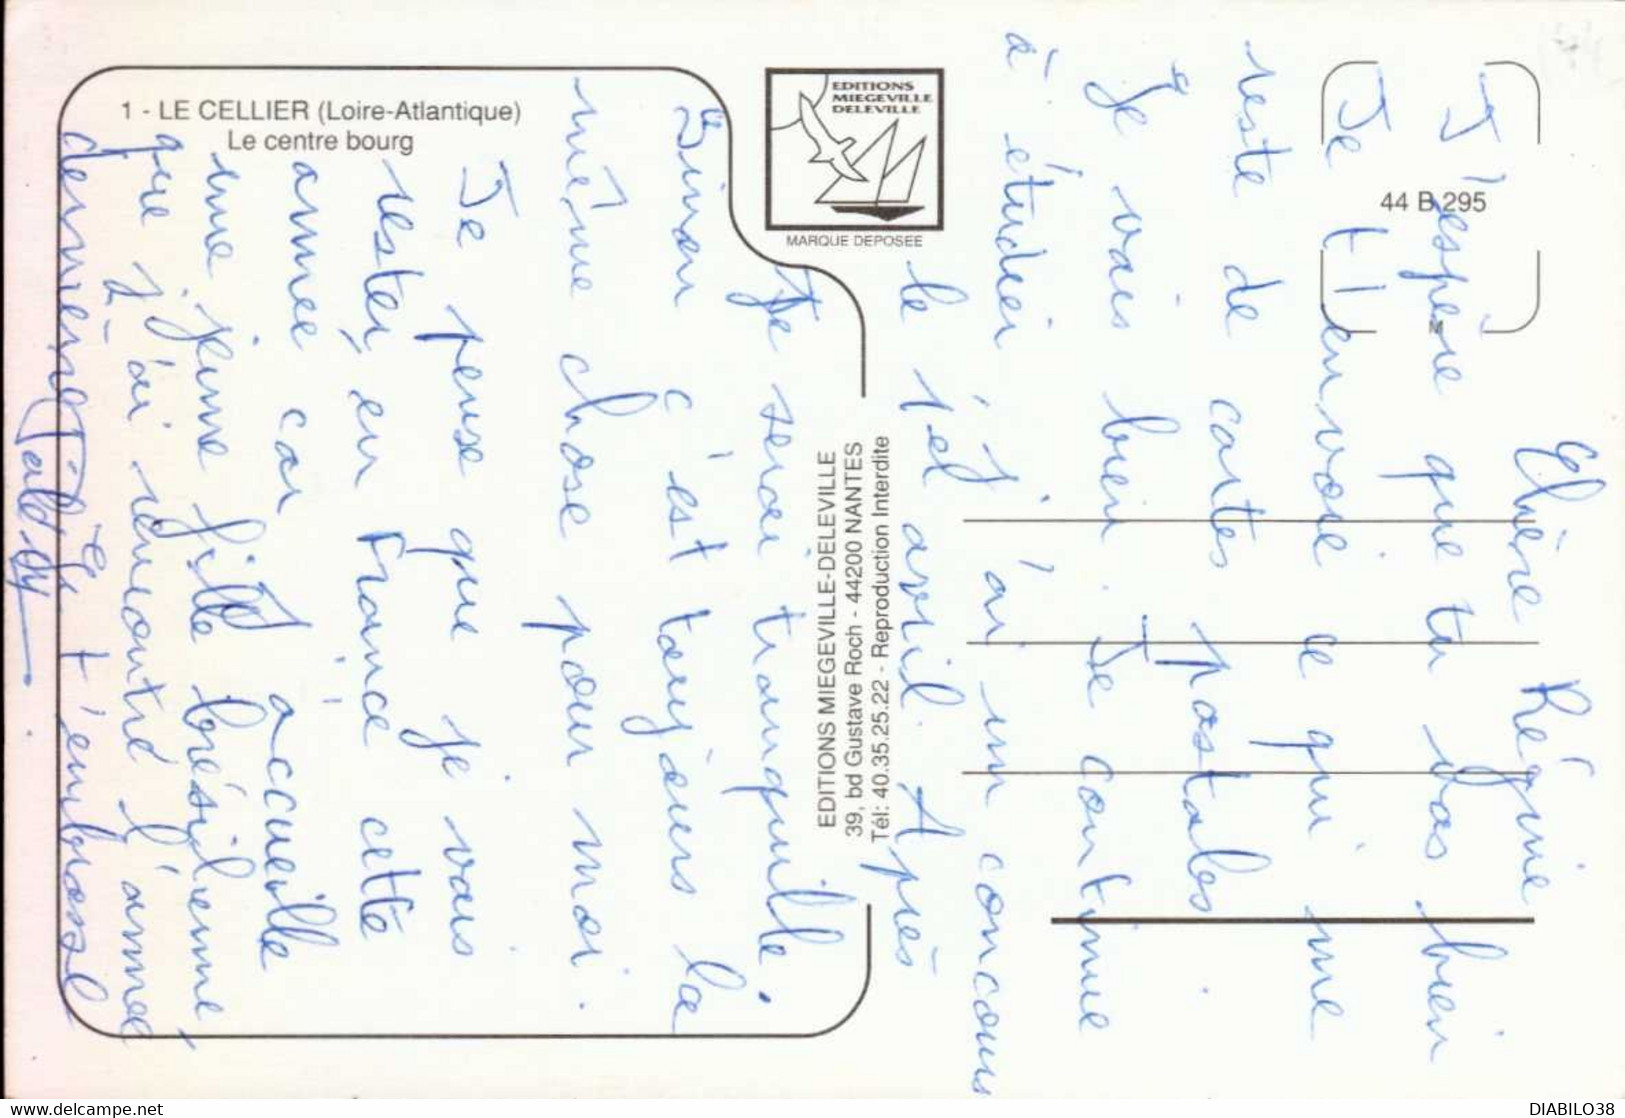 1 - LE CELLIER (Loire-Atlantique)
Le centre bourg
EDITIONS
MIEGEVILLE
DELEVILLE
MARQUE DEPOSEE
44 B 295
M
EDITIONS MIEGEVILLE-DELEVILLE
39, bd Gustave Roch - 44200 NANTES
Tél: 40.35.25.22 - Reproduction Interdite
Chère Régine
J'espère que tu vas bien
Je t'envoie ce qui me
reste de cartes postales.
Je vais bien. Je continue
à étudier j'ai un concours
le 1er avril. Après
je serai tranquille.
Sinon c'est toujours la
même chose pour moi.
Je pense que je vais
rester en France cette
année car j'accueille
une jeune fille brésilienne,
que j'ai rencontré l'année
dernière. Je t'embrasse
DIABILO38
www.delcampe.net